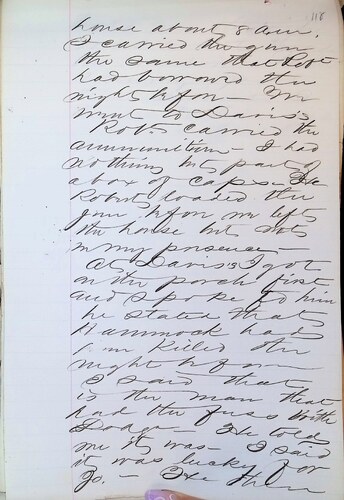 116
house about 8 a.m.
I carried the gun
the same that Robt
had borrowed the
night before — We
went to Davis's
Robt carried the
ammunition — I had
nothing but part of
a box of caps — He
Robert loaded the
gun before we left
the house but not
in my presence —
At Davis's I got
on the porch first
and spoke to him
he stated that
Hammock had
been killed the
night before
I said that
is the man that
had the fuss with
Dodge — He told
me it was — I said
it was lucky for
Jo. — He then